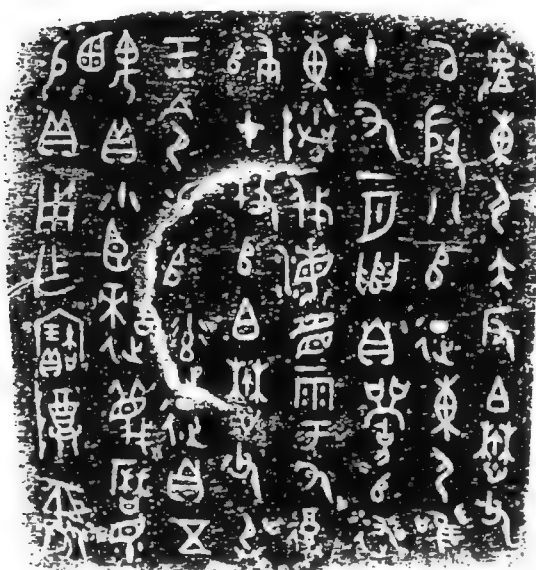 東尸大反白懋父
以殷八𠂤征東尸唯
十又一月遣自𠂤述
東伐海眉雩氒復
歸才牧𠂤白懋父承
王令易𠂤征自五
齵貝小臣蔑曆眔
易貝用乍寶尊彝